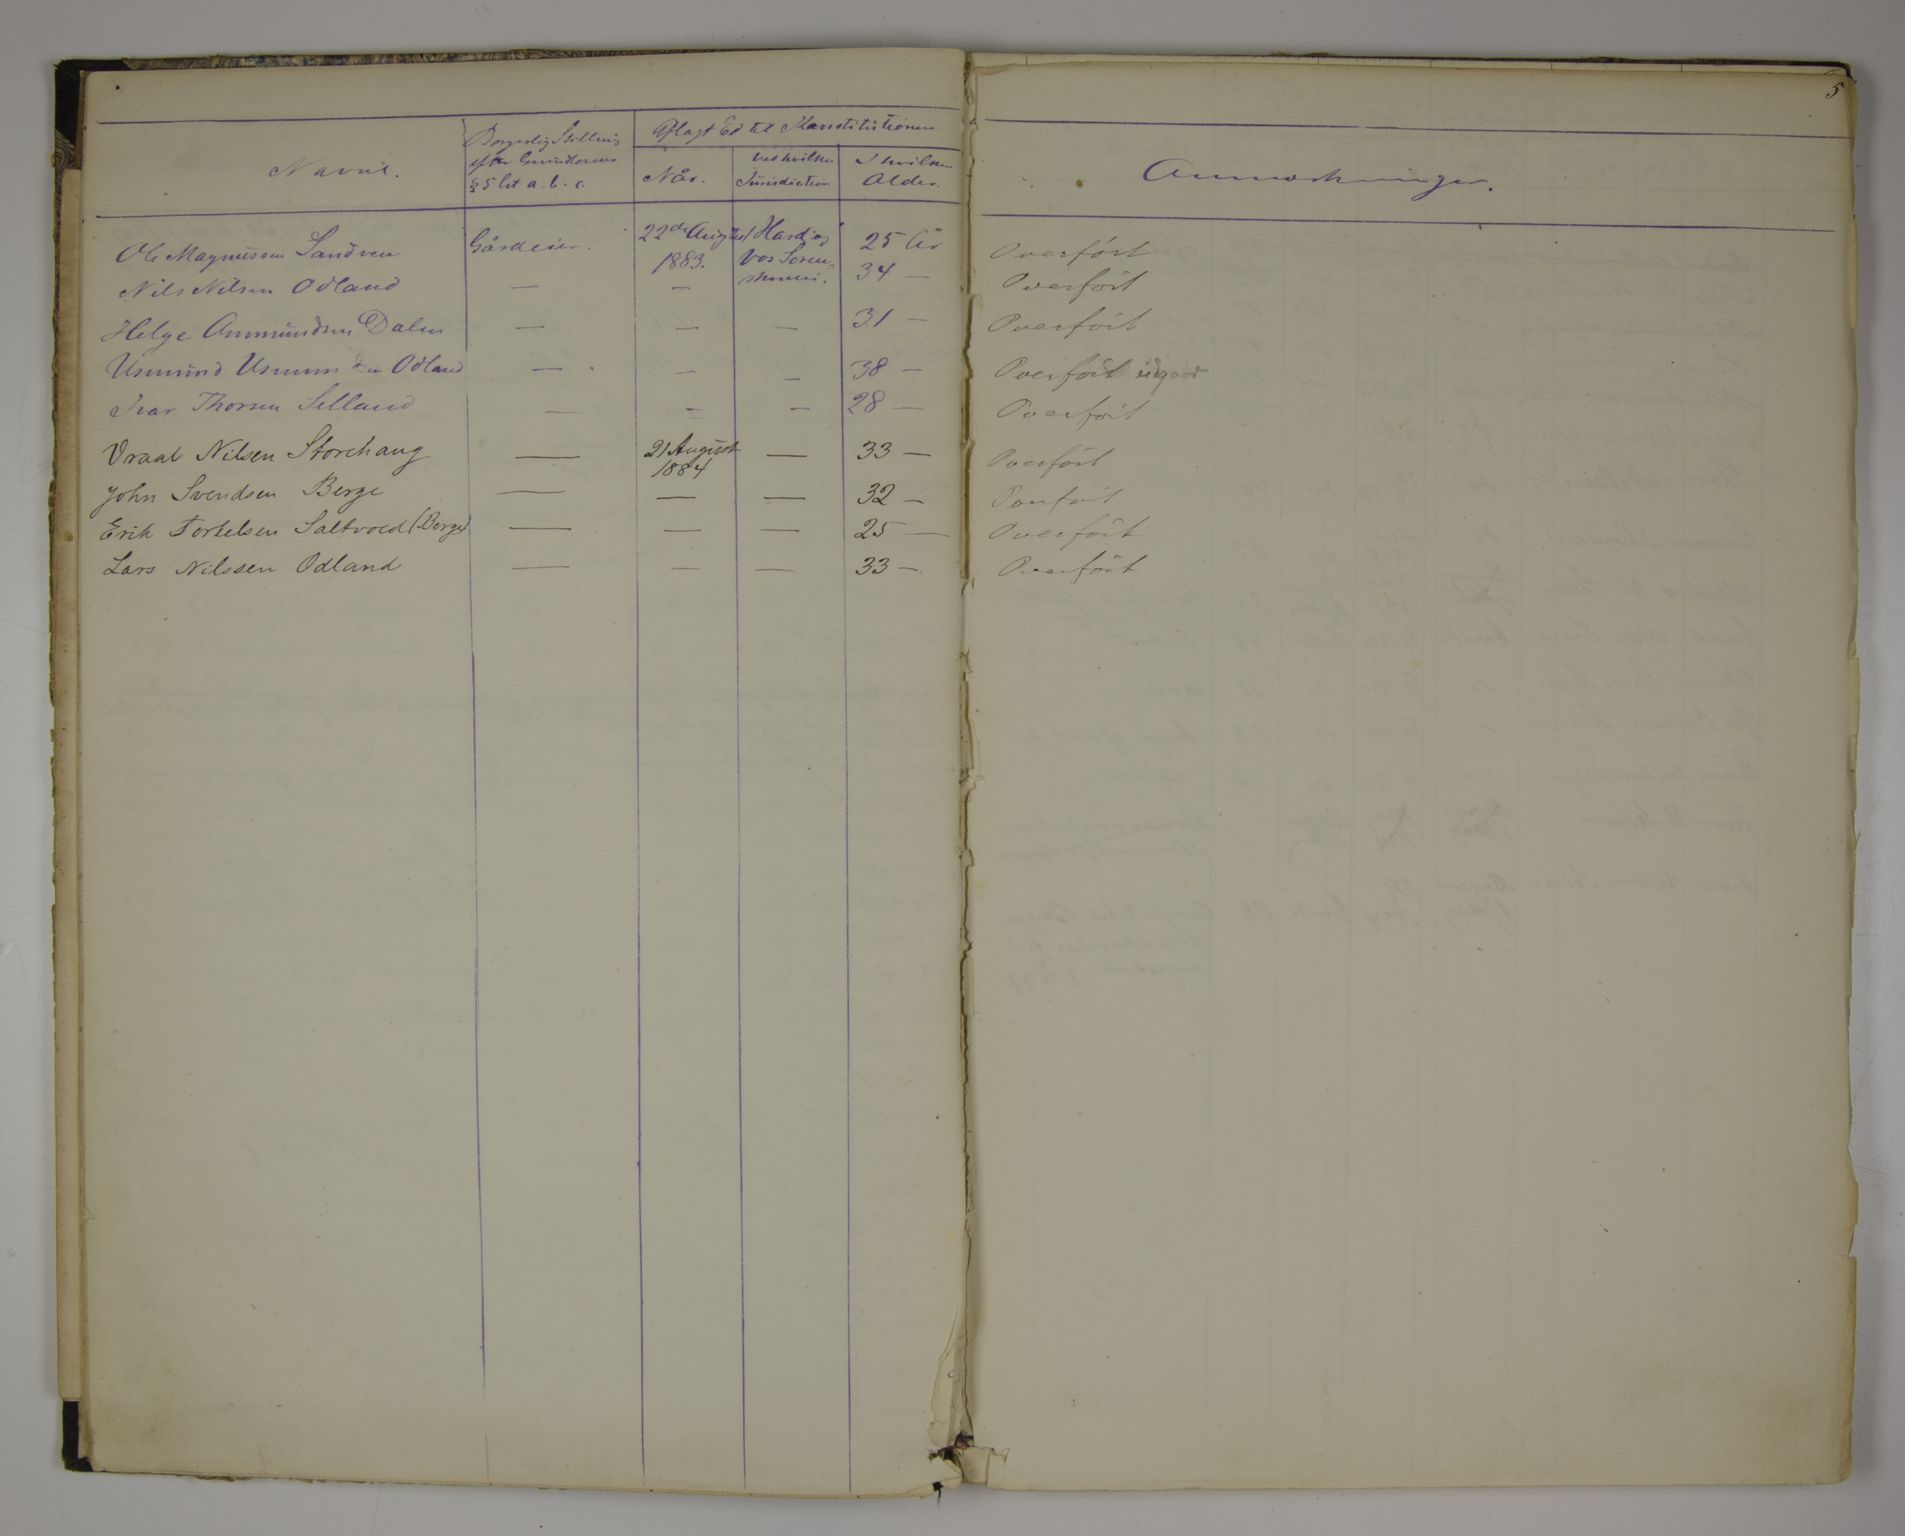 5
Navne.
Borgerlig Stilling
efter Grundlovens
§5 lit a. b. c.
Aflagt Ed til Konstitutionen
Når.
ved hvilken
Jurisdiction
I hvilken
Alder.
Anmærkninger.
Ole Magnussen Sandven Gårdeier. 22de August Hard. og 25 År Overført
1883. Vos Soren-
skriveri.
Nils Nilsen Odland — — 34 — Overført
Helge Ammundsen Dalen — — — 31 — Overført
Usmund Usmundsen Odland — — — 38 — Overført udgaar
Ivar Thorsen Selland — — — 28 — Overført
Vraal Nilsen Storehaug — 21 August — 33 — Overført
1884
John Svendsen Berge — — — 32 — Overført
Erik Torkelsen Saltvold (Berge) — — — 25 — Overført
Lars Nilssen Odland — — — 33 — Overført